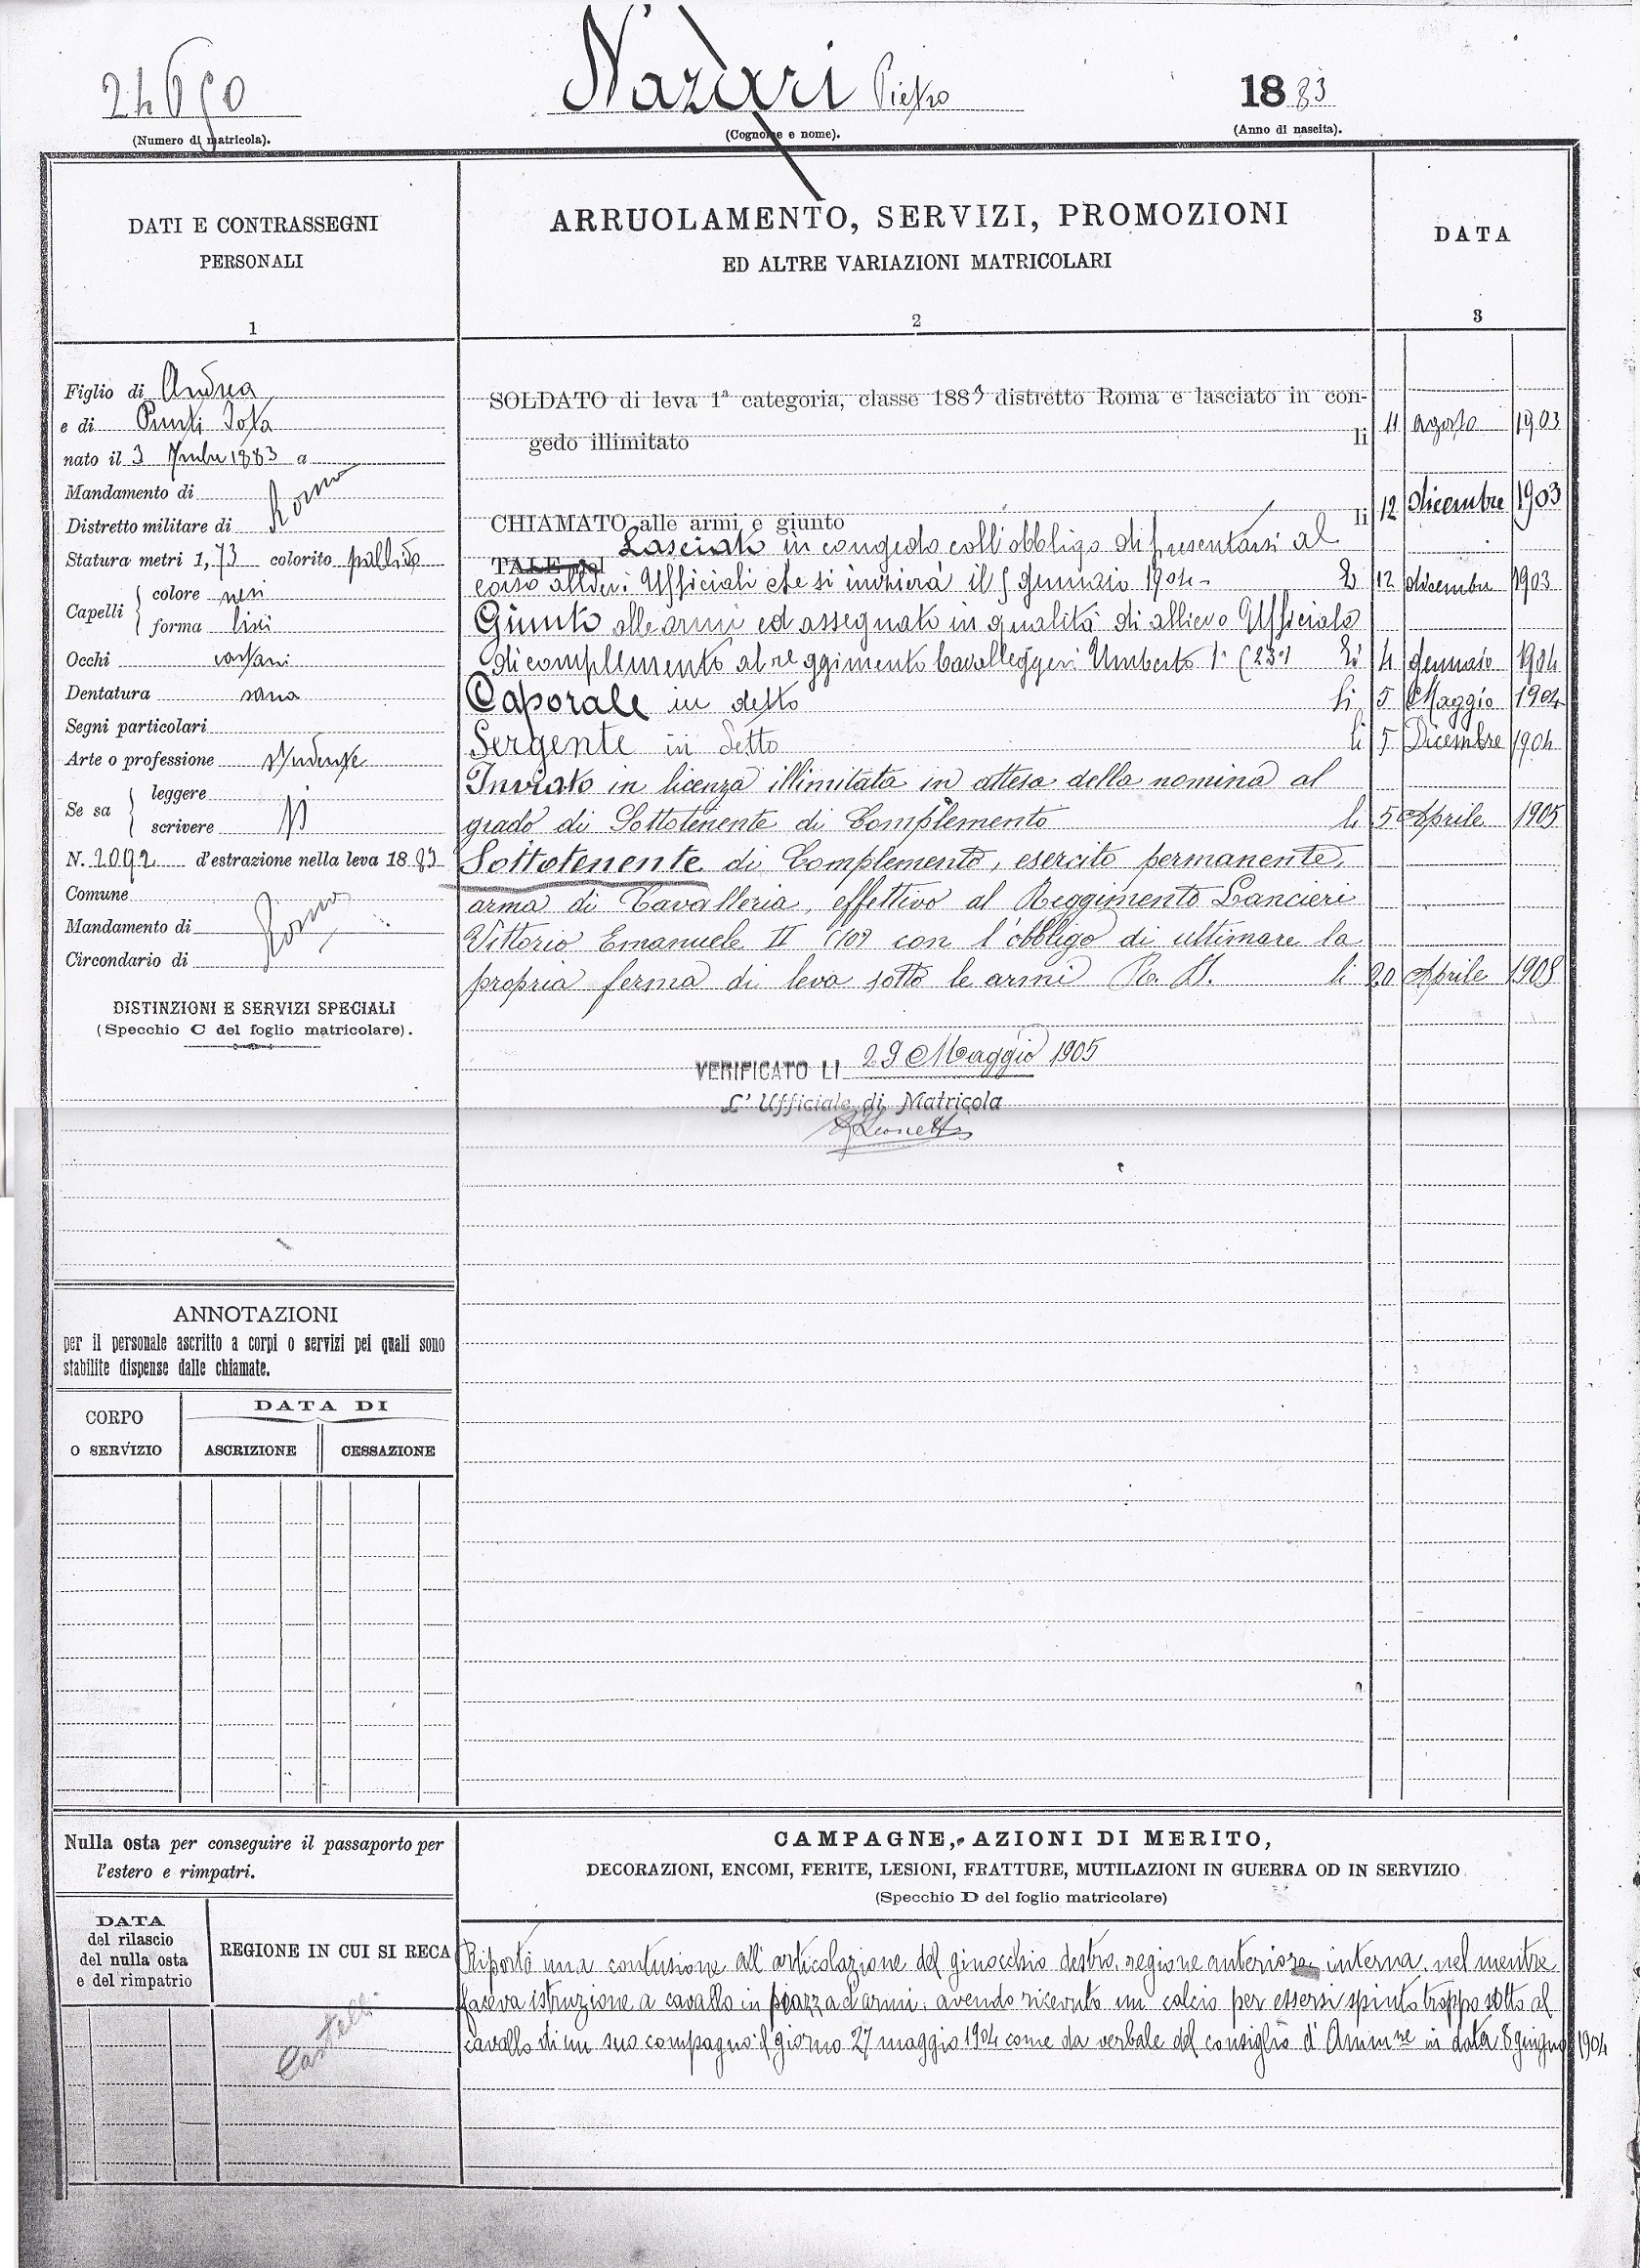 24650
Nazari Pietro
1883
(Numero di matricola).
(Cognome e nome).
(Anno di nascita).
DATI E CONTRASSEGNI
PERSONALI
1
ARRUOLAMENTO, SERVIZI, PROMOZIONI
ED ALTRE VARIAZIONI MATRICOLARI
2
DATA
3
Figlio di Andrea
e di
nato il 3 1883 a
Mandamento di
Distretto militare di Roma
Statura metri 1,73 colorito pallido
Capelli
colore neri
forma lisci
Occhi castani
Dentatura sana
Segni particolari
Arte o professione studente
Se sa
leggere
scrivere si
N. 2092 d'estrazione nella leva 1883
Comune
Mandamento di Roma
Circondario di
DISTINZIONI E SERVIZI SPECIALI
(Specchio C del foglio matricolare).
SOLDATO di leva 1ª categoria, classe 1883 distretto Roma e lasciato in con-
gedo illimitato li 11 agosto 1903
CHIAMATO alle armi e giunto li 12 dicembre 1903
TALE nel Lasciato in congedo coll'obbligo di presentarsi al
corso allievi Ufficiali che si inizierà il 5 gennaio 1904 - li 12 dicembre 1903
Giunto alle armi ed assegnato in qualità di allievo Ufficiale
di complemento al reggimento Cavalleggeri Umberto 1° (23°) li 4 gennaio 1904
Caporale in detto li 5 Maggio 1904
Sergente in detto li 5 Dicembre 1904
Inviato in licenza illimitata in attesa della nomina al
grado di Sottotenente di Complemento li 5 Aprile 1905
Sottotenente di Complemento, esercito permanente,
arma di Cavalleria, effettivo al Reggimento Lancieri
Vittorio Emanuele II (10°) con l'obbligo di ultimare la
propria ferma di leva sotto le armi R. D. li 20 Aprile 1905
VERIFICATO LI 29 Maggio 1905
L'Ufficiale di Matricola
ANNOTAZIONI
per il personale ascritto a corpi o servizi pei quali sono
stabilite dispense dalle chiamate.
CORPO
O SERVIZIO
DATA DI
ASCRIZIONE
CESSAZIONE
Nulla osta per conseguire il passaporto per
l'estero e rimpatri.
DATA
del rilascio
del nulla osta
e del rimpatrio
REGIONE IN CUI SI RECA
CAMPAGNE, AZIONI DI MERITO,
DECORAZIONI, ENCOMI, FERITE, LESIONI, FRATTURE, MUTILAZIONI IN GUERRA OD IN SERVIZIO
(Specchio D del foglio matricolare)
Riportò una contusione all'articolazione del ginocchio destro, regione anteriore interna, nel mentre
faceva istruzione a cavallo in piazza d'armi, avendo ricevuto un calcio per essersi spinto troppo sotto al
cavallo di un suo compagno il giorno 27 maggio 1904 come da verbale del consiglio d'Amm.ne in data 8 giugno 1904